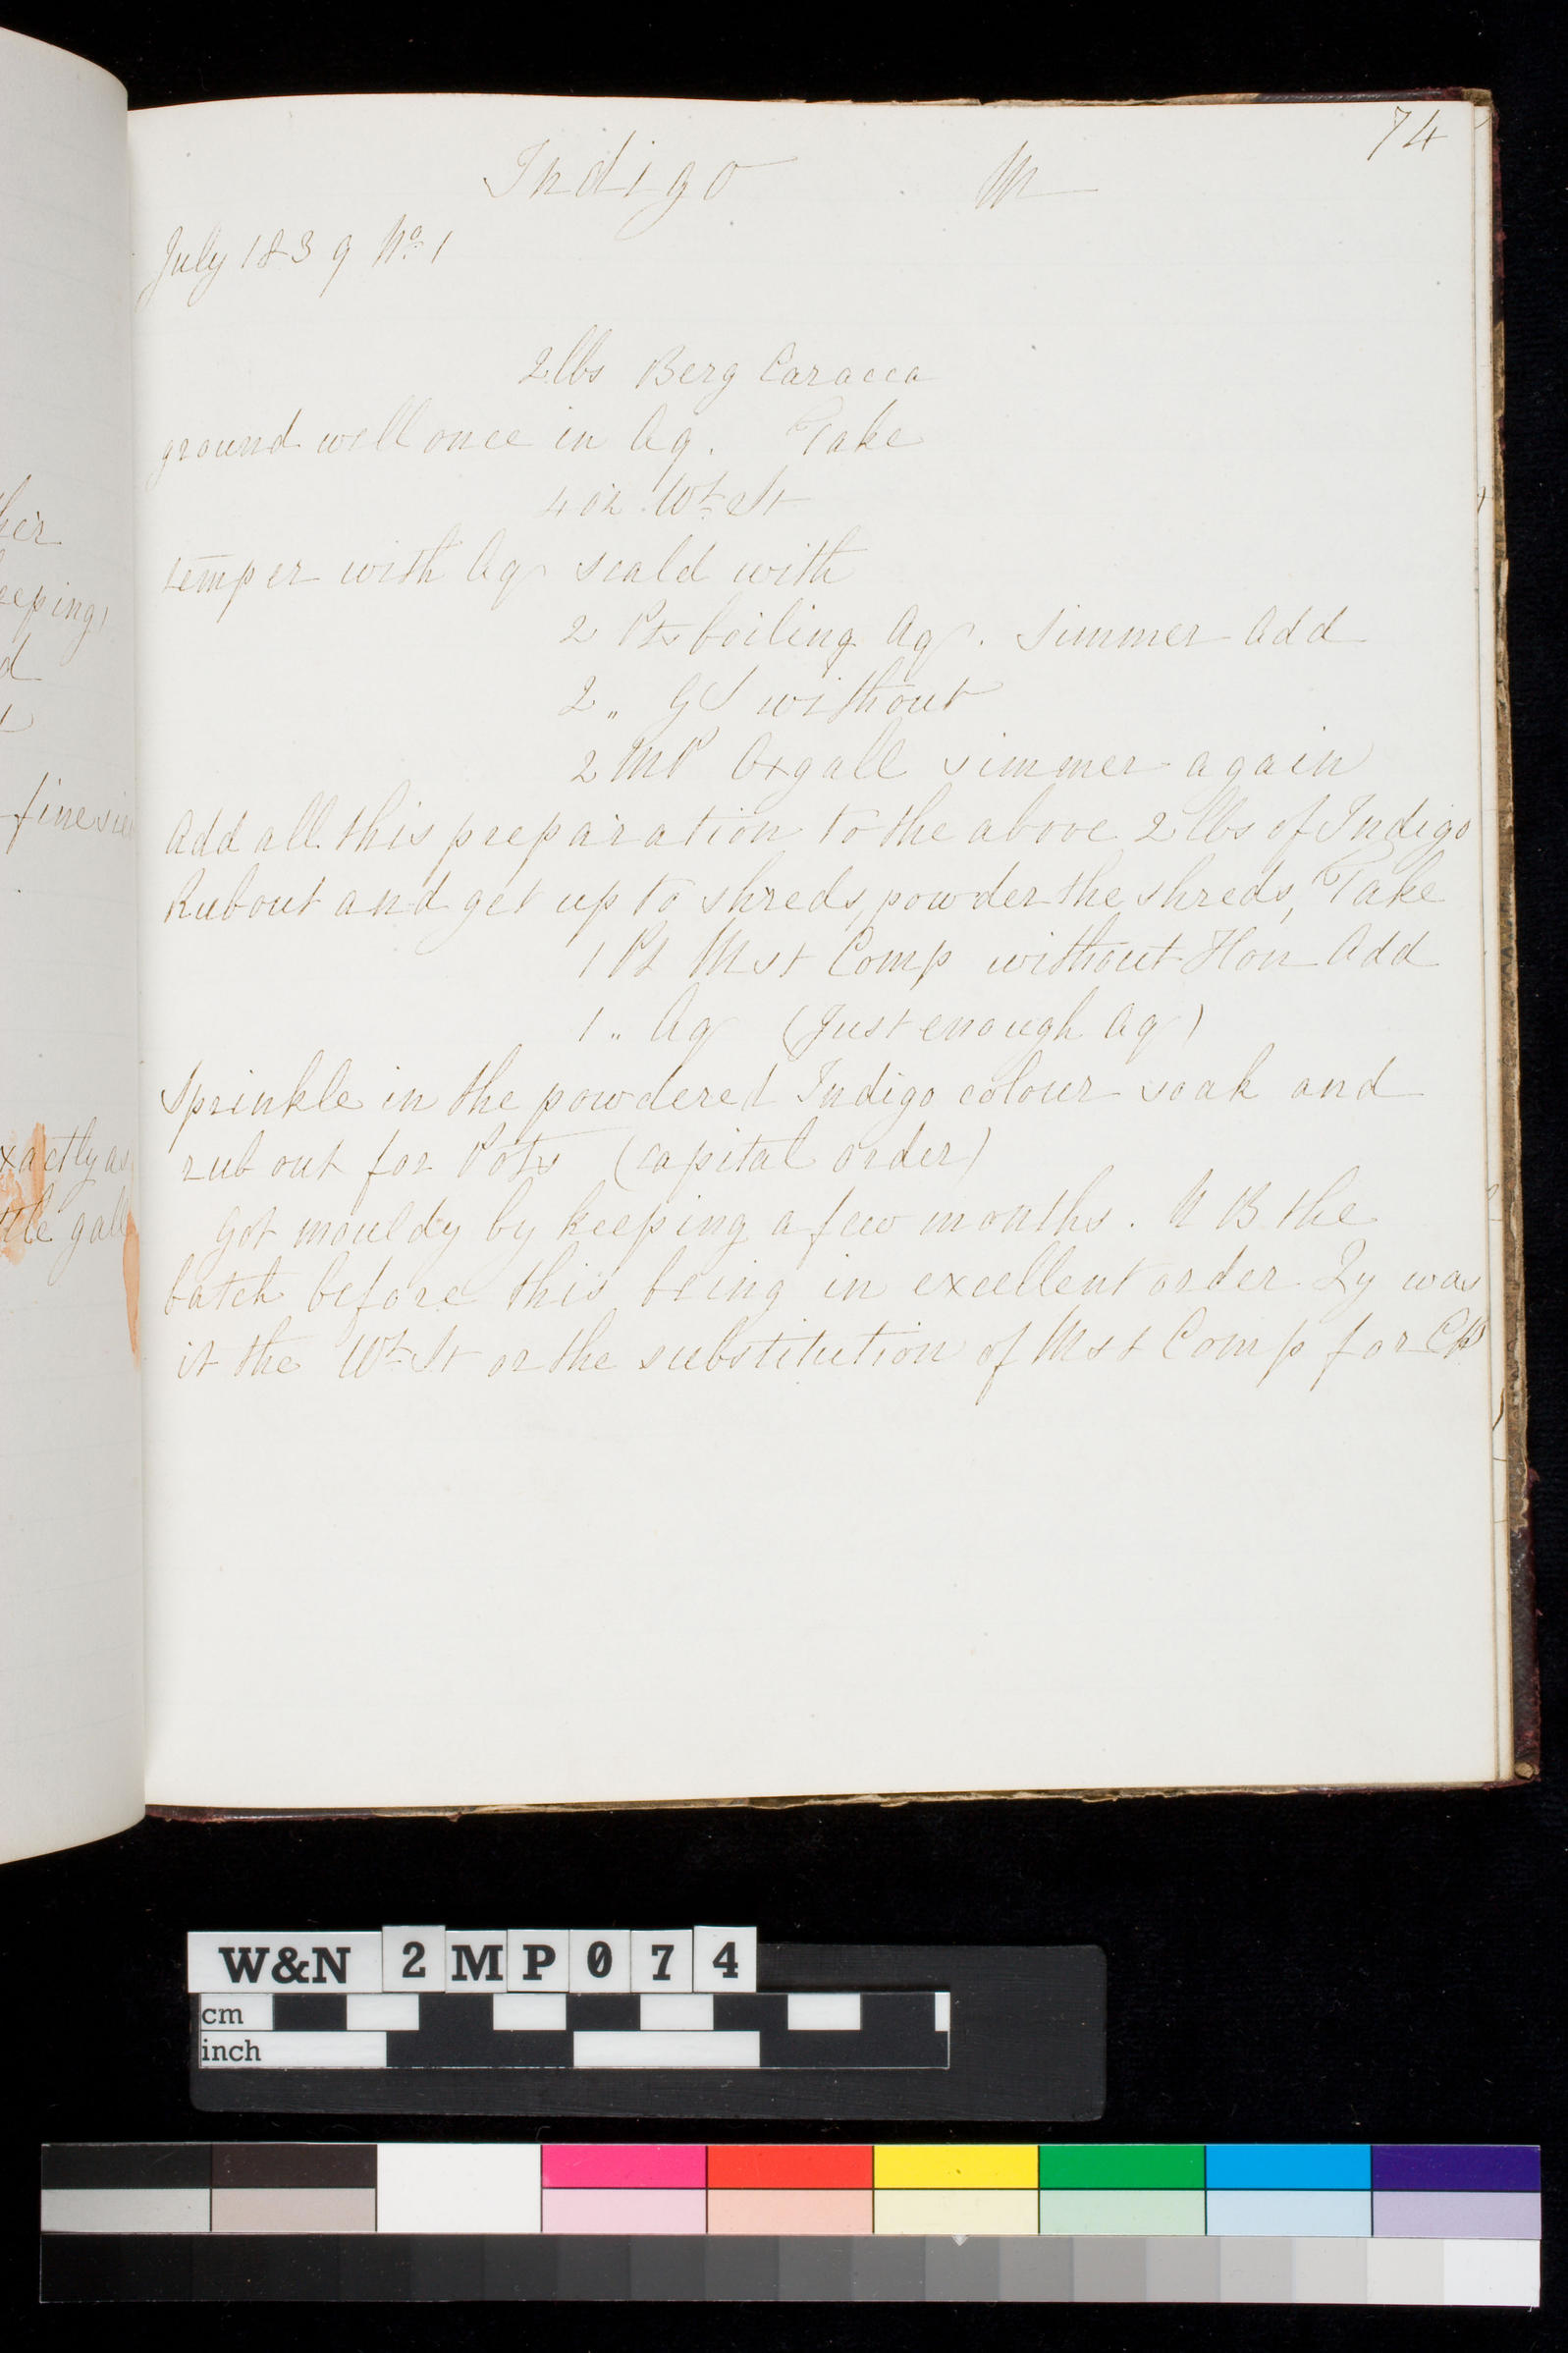 74
Indigo M
July 1839 No. 1
2lbs Berg Caracca
ground well once in Aq. Take
4 oz Wt St
temper with Aq scald with
2 Pts boiling Aq. Simmer Add
2 „ GS without
2 MP Oxgall simmer again
Add all this preparation to the above 2lbs of Indigo
Rub out and get up to shreds, powder the shreds, Take
1 Pt Mst Comp without Hon Add
1 „ Aq (Just enough Aq)
Sprinkle in the powdered Indigo colour soak and
rub out for Pots (capital order)
Got mouldy by keeping a few months. N B the
batch before this being in excellent order Qy was
it the Wt St or the substitution of Mst Comp for
eeping
d
fine
xactly as
tle gall
W&N 2MP074
cm
inch